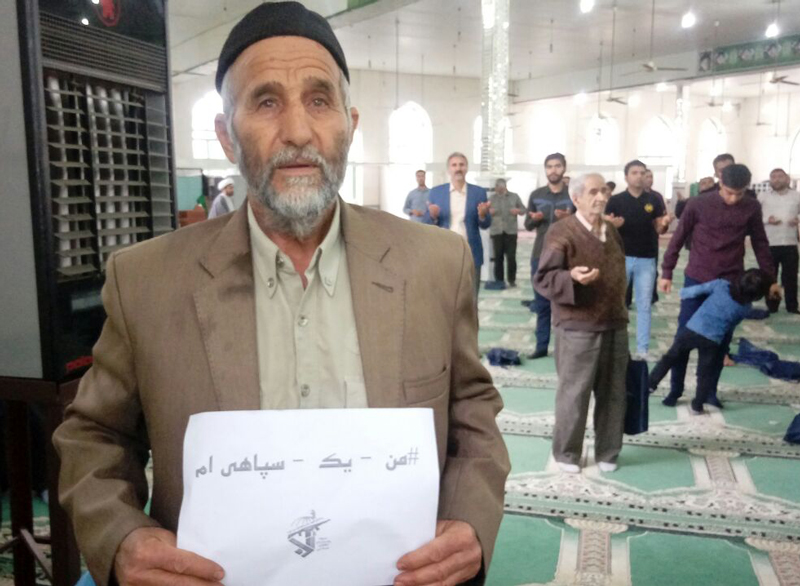 #من - یک - سپاهی ام